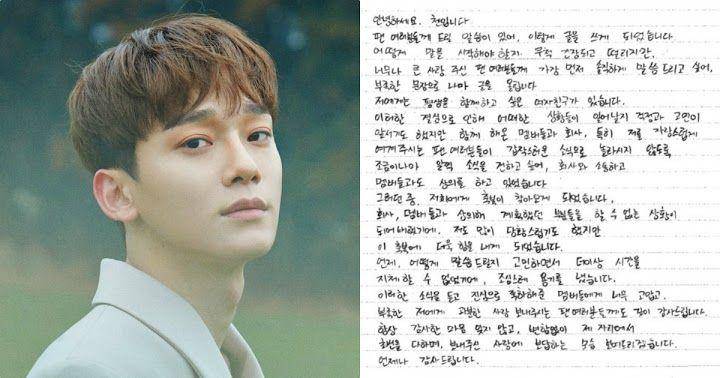 안녕하세요. 첸입니다
팬 여러분들께 드릴 말씀이 있어, 이렇게 글을 쓰게 되었습니다.
어떻게 말을 시작해야할지 무척 긴장되고 떨리지만,
너무나 큰 사랑 주신 팬 여러분들께 가장 먼저 솔직하게 말씀드리고 싶어,
부족한 문장으로 나마 글을 올립니다
저에게는 평생을 함께하고 싶은 여자친구가 있습니다.
이러한 결심으로 인해 어떠한 상황들이 일어날지 걱정과 고민이
앞서기도 했지만 함께 해온 멤버들과 회사, 특히 저를 자랑스럽게
여겨주시는 팬 여러분들이 갑작스러운 소식으로 놀라시지 않도록
조금이나마 일찍 소식을 전하고 싶어, 회사와 소통하고
멤버들과도 상의를 하고 있었습니다
그러던 중, 저희에게 축복이 찾아오게 되었습니다.
회사, 멤버들과 상의해 계획했던 부분들을 할 수 없는 상황이
되어버렸기에, 저도 많이 당황스럽기도 했지만
이 축복에 더욱 힘을 내게 되었습니다.
언제, 어떻게 말씀드릴지 고민하면서 더이상 시간을
지체할 수 없었기에, 조심스레 용기를 냈습니다.
이러한 소식을 듣고 진심으로 축하해준 멤버들에게 너무 고맙고,
부족한 저에게 과분한 사랑 보내주시는 팬 여러분들께도 깊이 감사드립니다.
항상 감사한 마음 잊지 않고, 변함없이 제 자리에서
최선을 다하며, 보내주신 사랑에 보답하는 모습 보여드리겠습니다.
언제나 감사드립니다.